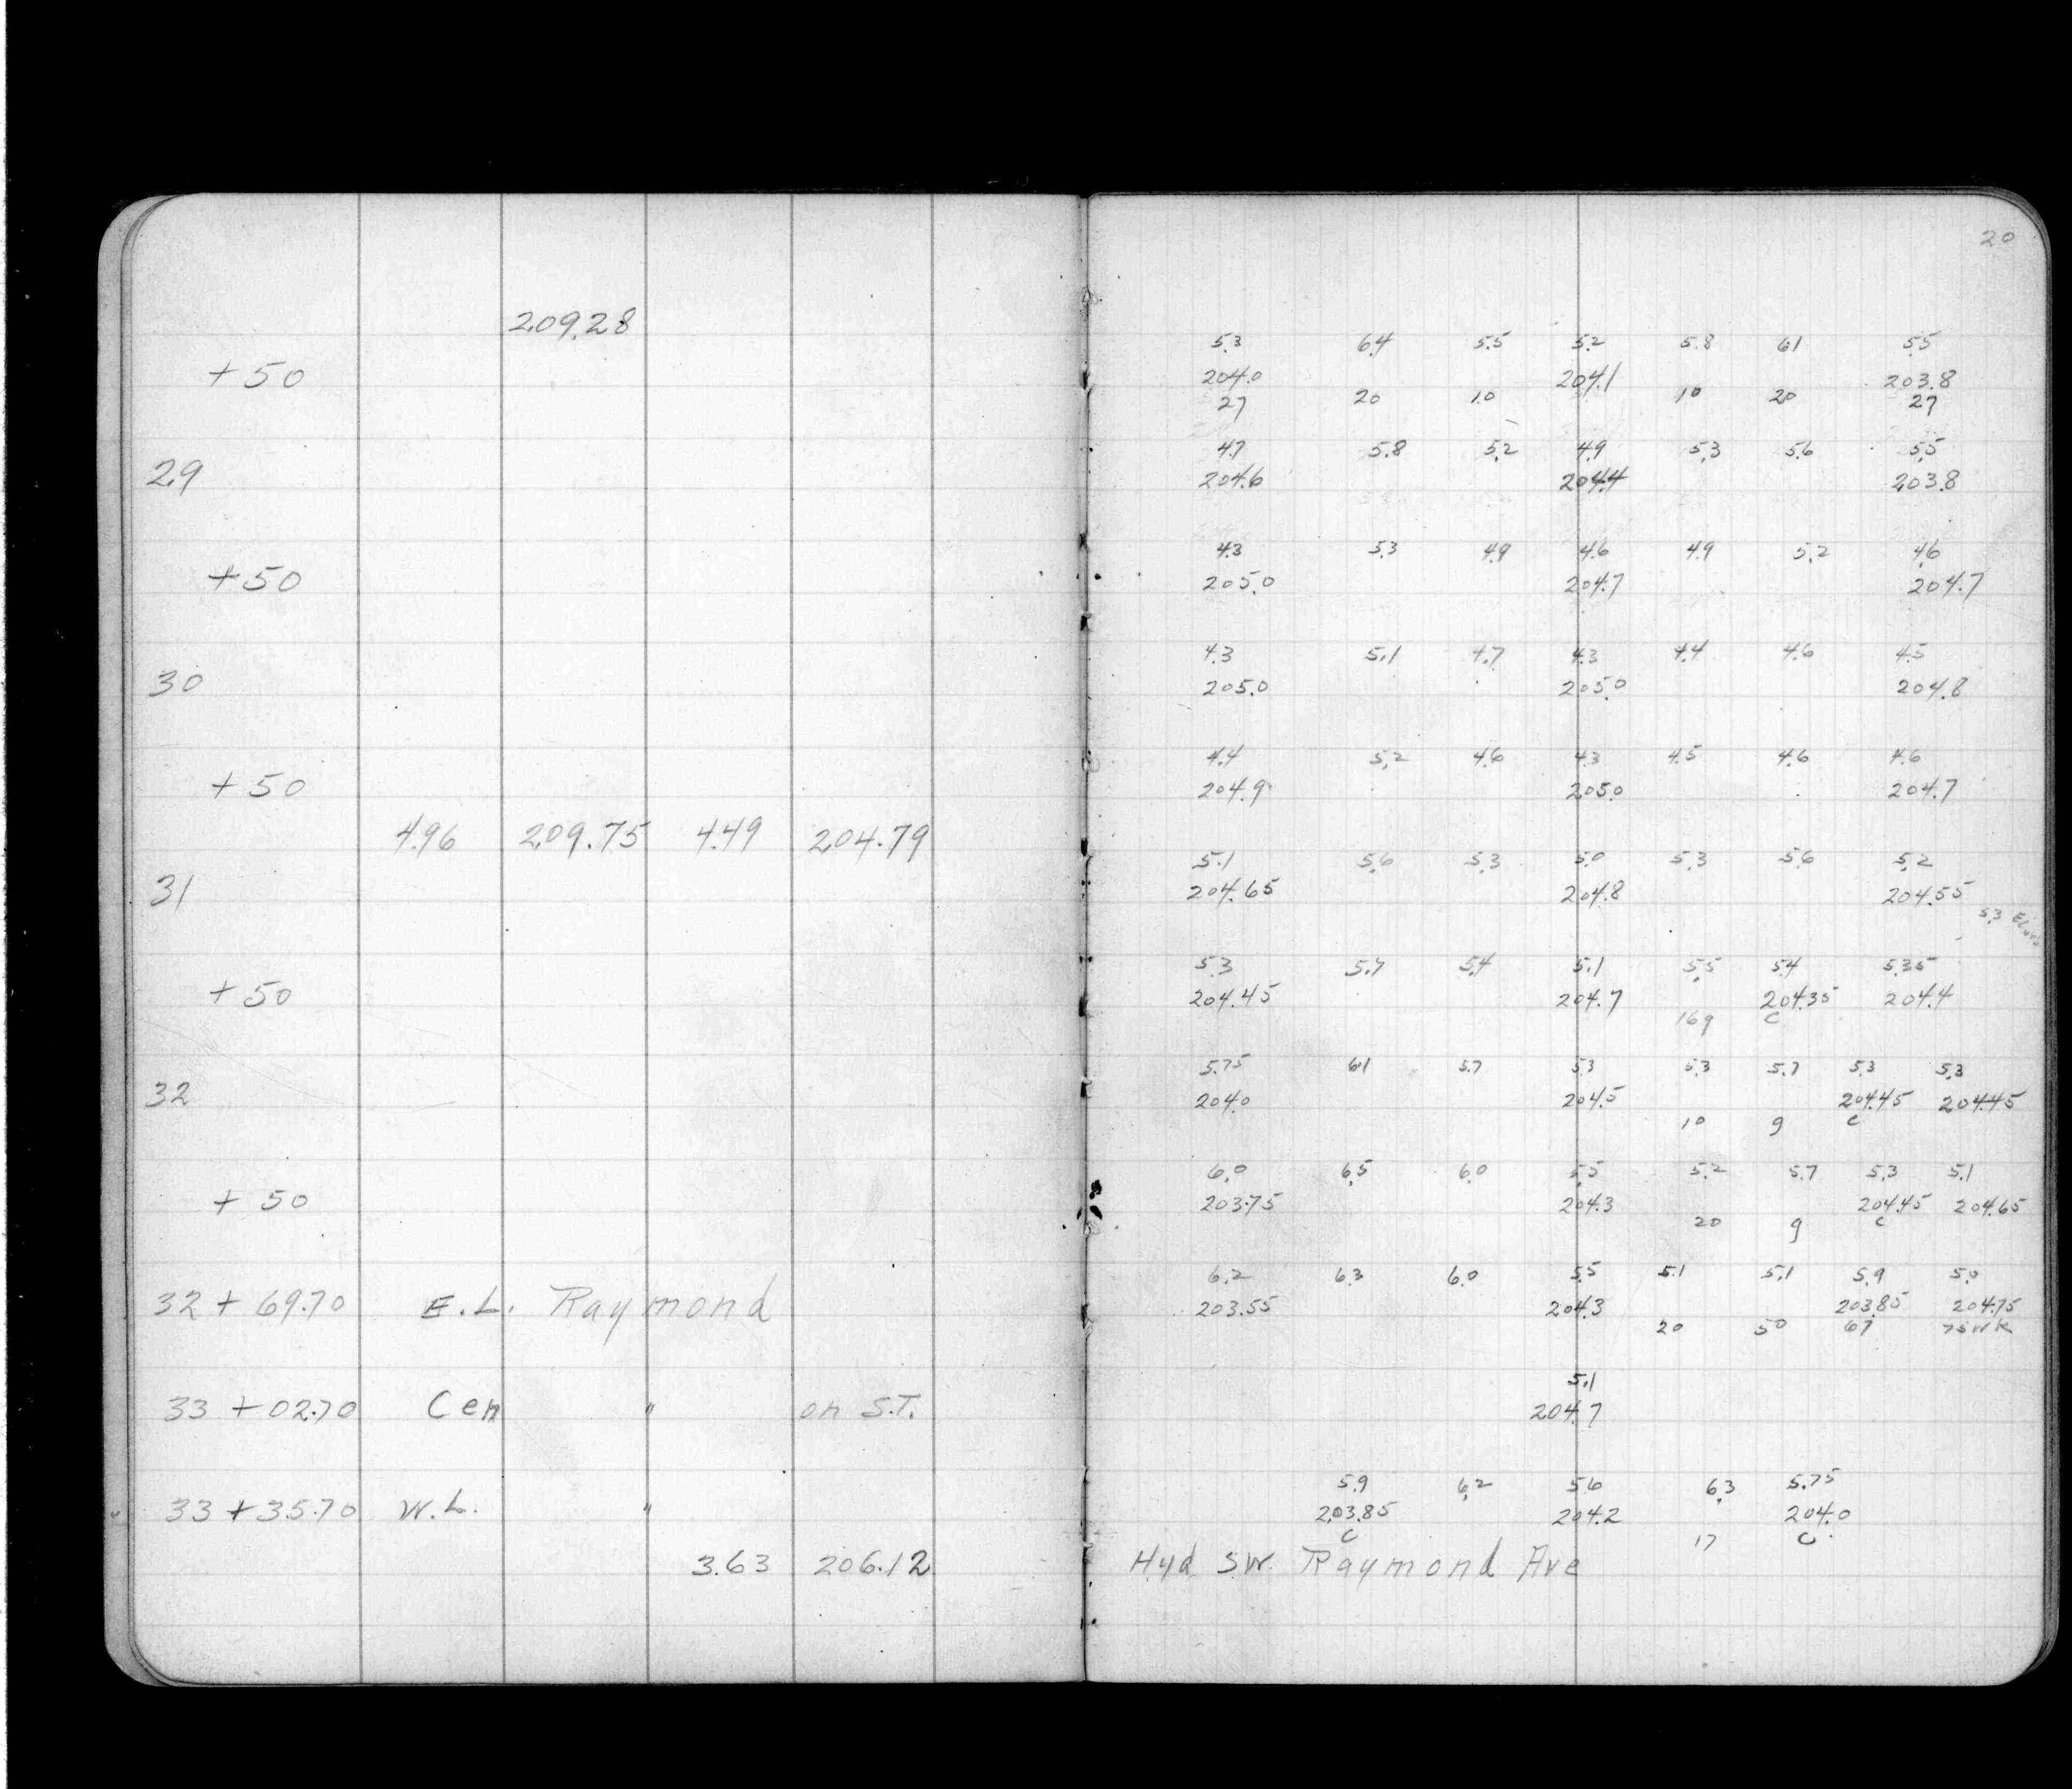 20
209.28
5.3 6.4 5.5 5.2 5.8 6.1 5.5
+50 204.0 204.1 203.8
27 20 10 10 20 27
4.7 5.8 5.2 4.9 5.3 5.6 5.5
29 204.6 204.4 203.8
4.3 5.3 4.9 4.6 4.9 5.2 4.6
+50 205.0 204.7 204.7
4.3 5.1 4.7 4.3 4.4 4.6 4.5
30 205.0 205.0 204.8
4.4 5.2 4.6 4.3 4.5 4.6 4.6
+50 204.9 205.0 204.7
4.96 209.75 4.49 204.79
5.1 5.6 5.3 5.0 5.3 5.6 5.2
31 204.65 204.8 204.55
5.3
5.3 5.7 5.4 5.1 5.5 5.4 5.35
+50 204.45 204.7 204.35 204.4
16g C
5.75 6.1 5.7 5.3 5.3 5.7 5.3 5.3
32 204.0 204.5 204.45 204.45
10 g C
6.0 6.5 6.0 5.5 5.2 5.7 5.3 5.1
+50 203.75 204.3 204.45 204.65
20 g C
6.2 6.3 6.0 5.5 5.1 5.1 5.9 5.0
32 + 69.70 E.L. Raymond 203.55 204.3 203.85 204.75
20 50 67 75WK
5.1
33 + 02.70 Cen " on S.T. 204.7
5.9 6.2 5.6 6.3 5.75
33 + 35.70 W.L. " 203.85 204.2 204.0
C 17 C
3.63 206.12 Hyd S.W. Raymond Ave